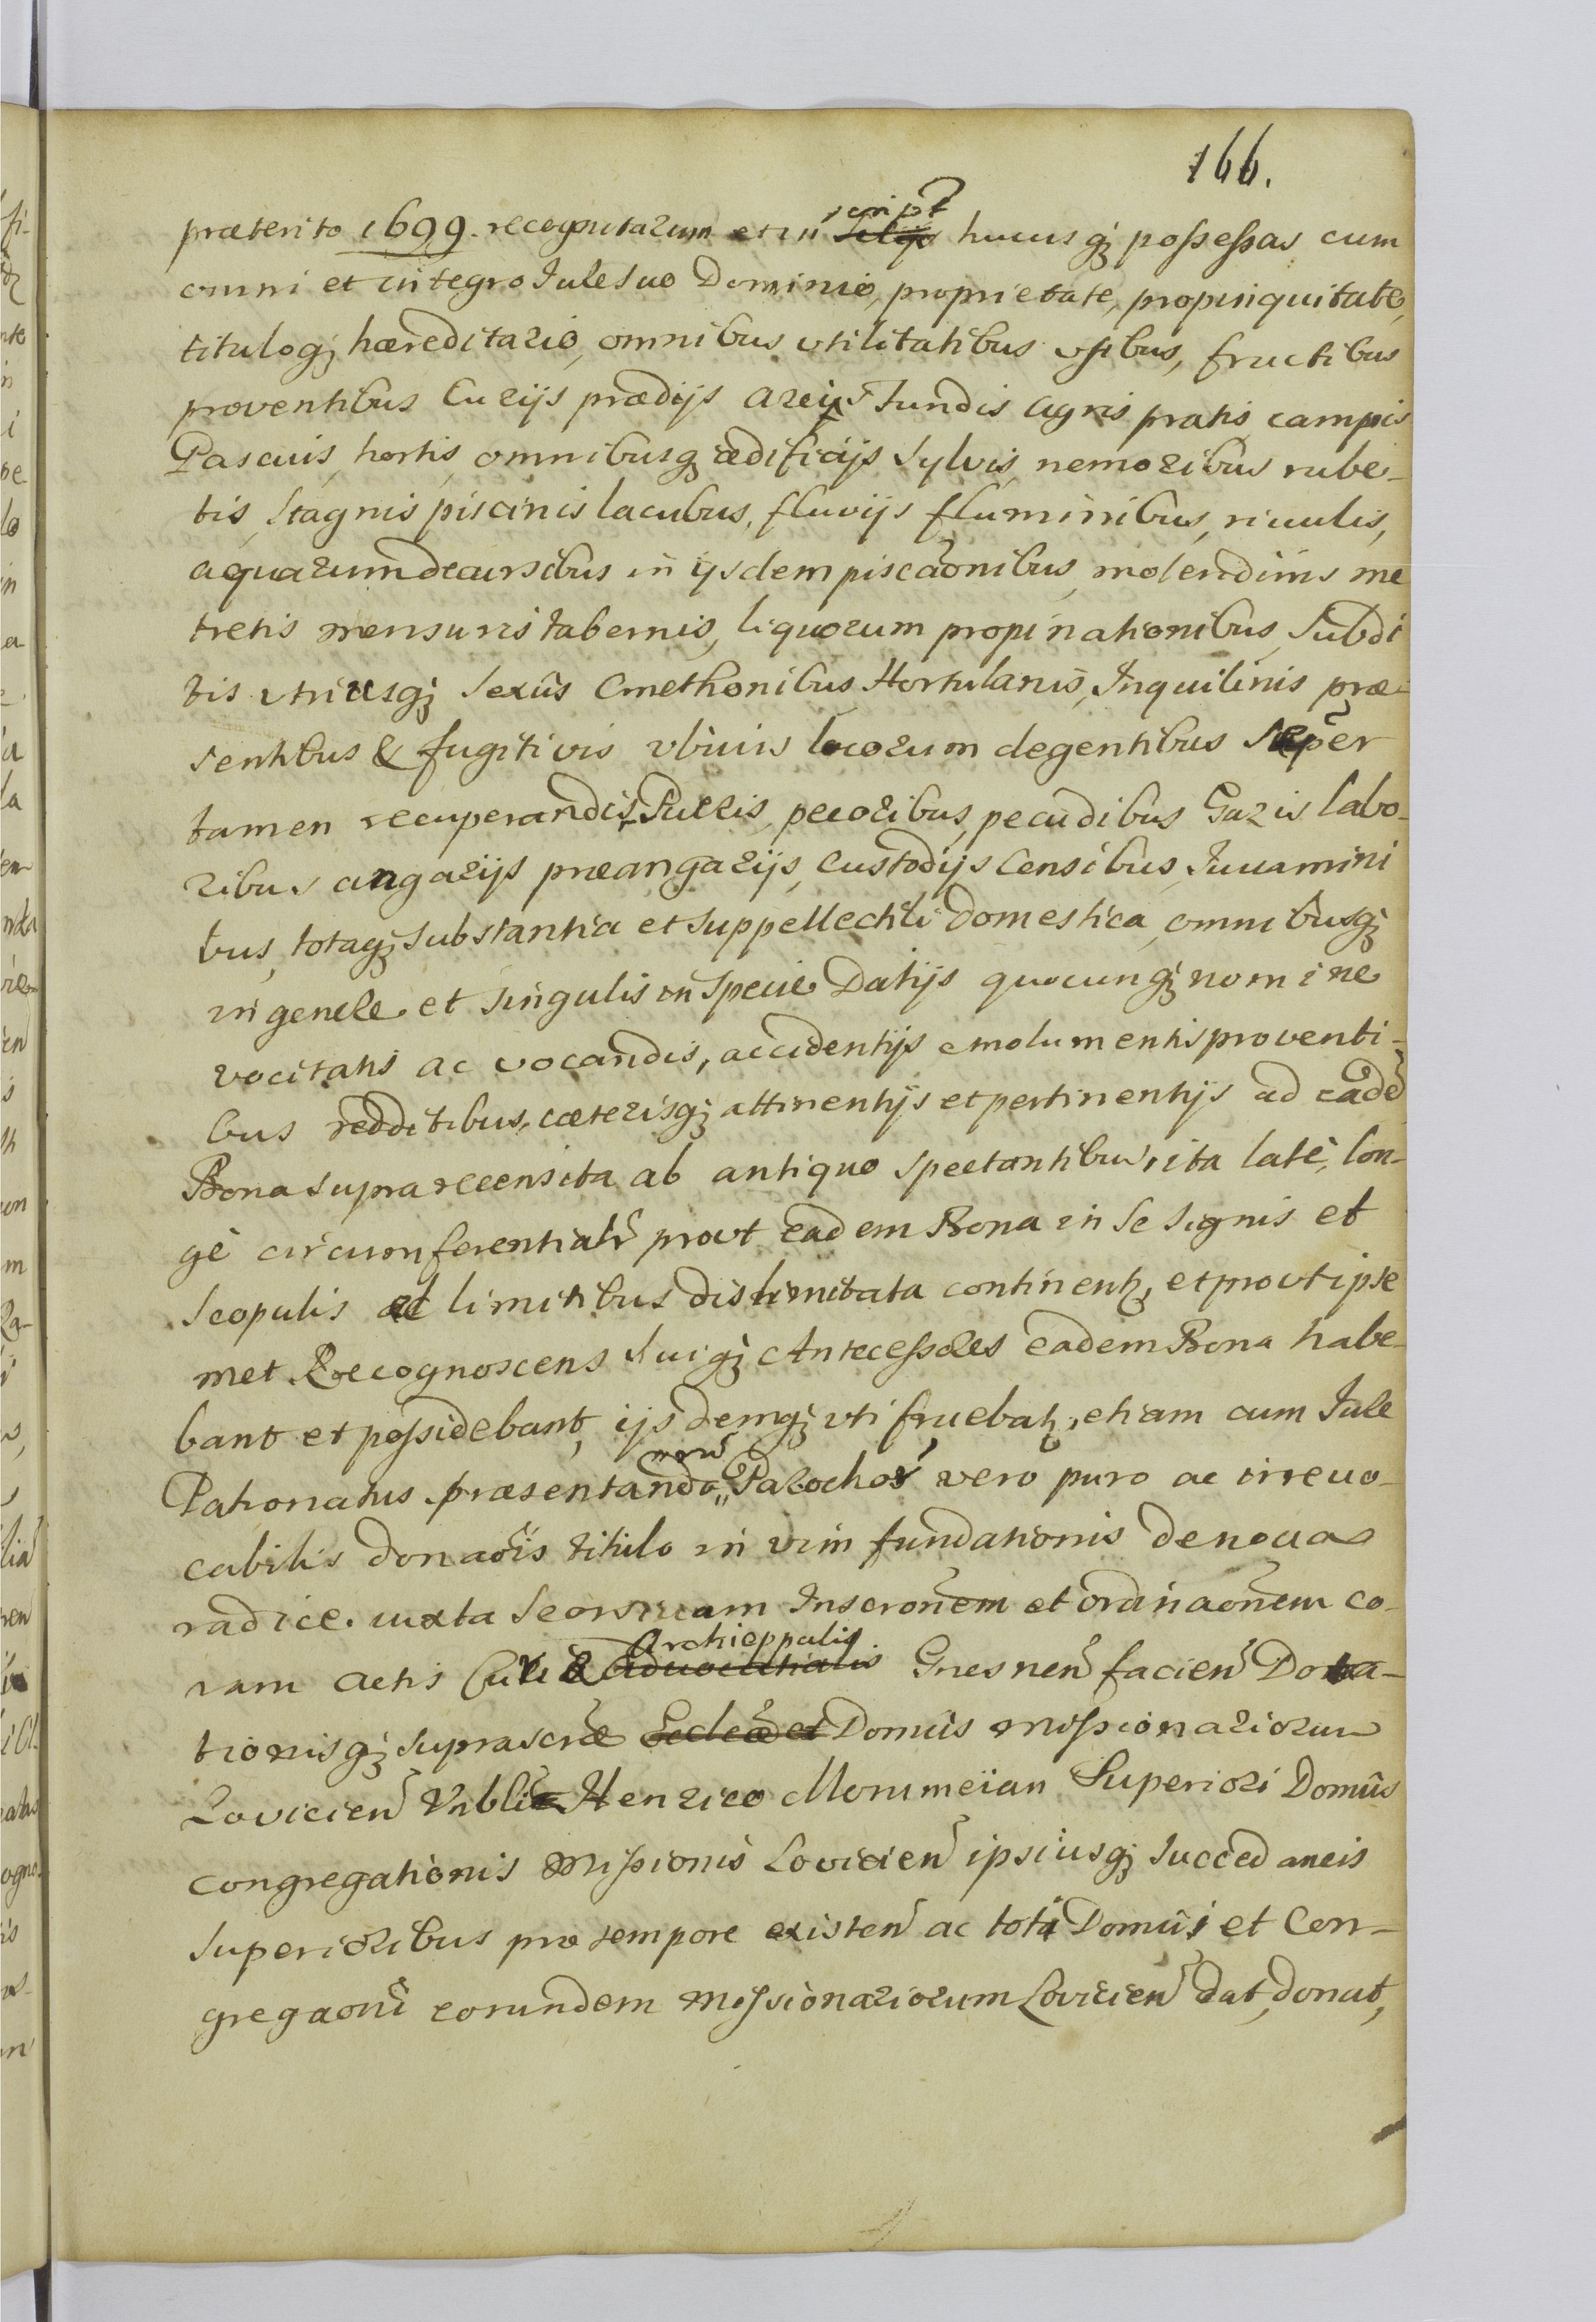 166.
præterito 1699. recognitarum et in script. hucusq; possessas cum
omni et integro Jure suo Dominio, proprietate, propinquitate,
tituloq; hæreditario, omnibus vtilitatibus vsibus, fructibus
proventibus Curijs prædijs areis Fundis agris pratis campis
Pascuis, hortis, omnibusq; ædificijs Sylvis, nemoribus rube-
tis, stagnis piscinis lacubus, fluvijs fluminibus, rivulis,
aquarum decursibus in ijsdem piscãonibus, molendinis me
tretis mensuris tabernis, liquorum propinationibus, Subdi
tis vtriusq; sexus Cmethonibus Hortulanis, Inquilinis præ-
sentibus & fugitivis vbivis locorum degentibus sẽper
tamen recuperandis, Pueris, pecoribus, pecudibus Gazis labo-
ribus angarijs præangarijs, custodijs Censibus, Juuamini
bus, totaq; substantia et suppellectili Domestica, omnibusq;
in genere et singulis in specie Datijs quocunq; nomine
vocitatis ac vocandis, accidentijs emolumentis proventi-
bus redditibus, cæterisq; attinentijs et pertinentijs ad eadẽ
Bona supra recensita ab antiquo spectantibus, ita latè, lon-
gè circumferentialr prout eadem Bona in se signis et
scopulis ac limitibus dislimitata continentr, et prout ipse
met Recognoscens Suiq; Antecessores eadem Bona habe-
bant et possidebant, ijsdemq; vti fruebatr, etiam cum Jure
Patronatus præsentando nvm Parochos vero puro ac irreuo-
cabilis donaõis titulo in vim fundationis de noua
radice. iuxta seorsivam Inscrõnem et ordinaõnem co-
ram Actis Curiæ Archieppalis Gnesnen facien Dota-
tionisq; suprascræ Domûs Missionariorum
Lovicien Vnbli Henrico Monmeian Superiori Domûs
congregationis Missionis Lovicien ipsiusq; succedaneis
Superioribus pro tempore existen ac toti Domui et Con-
gregaõni eorundem Missionariorum Lovicien dat, donat,